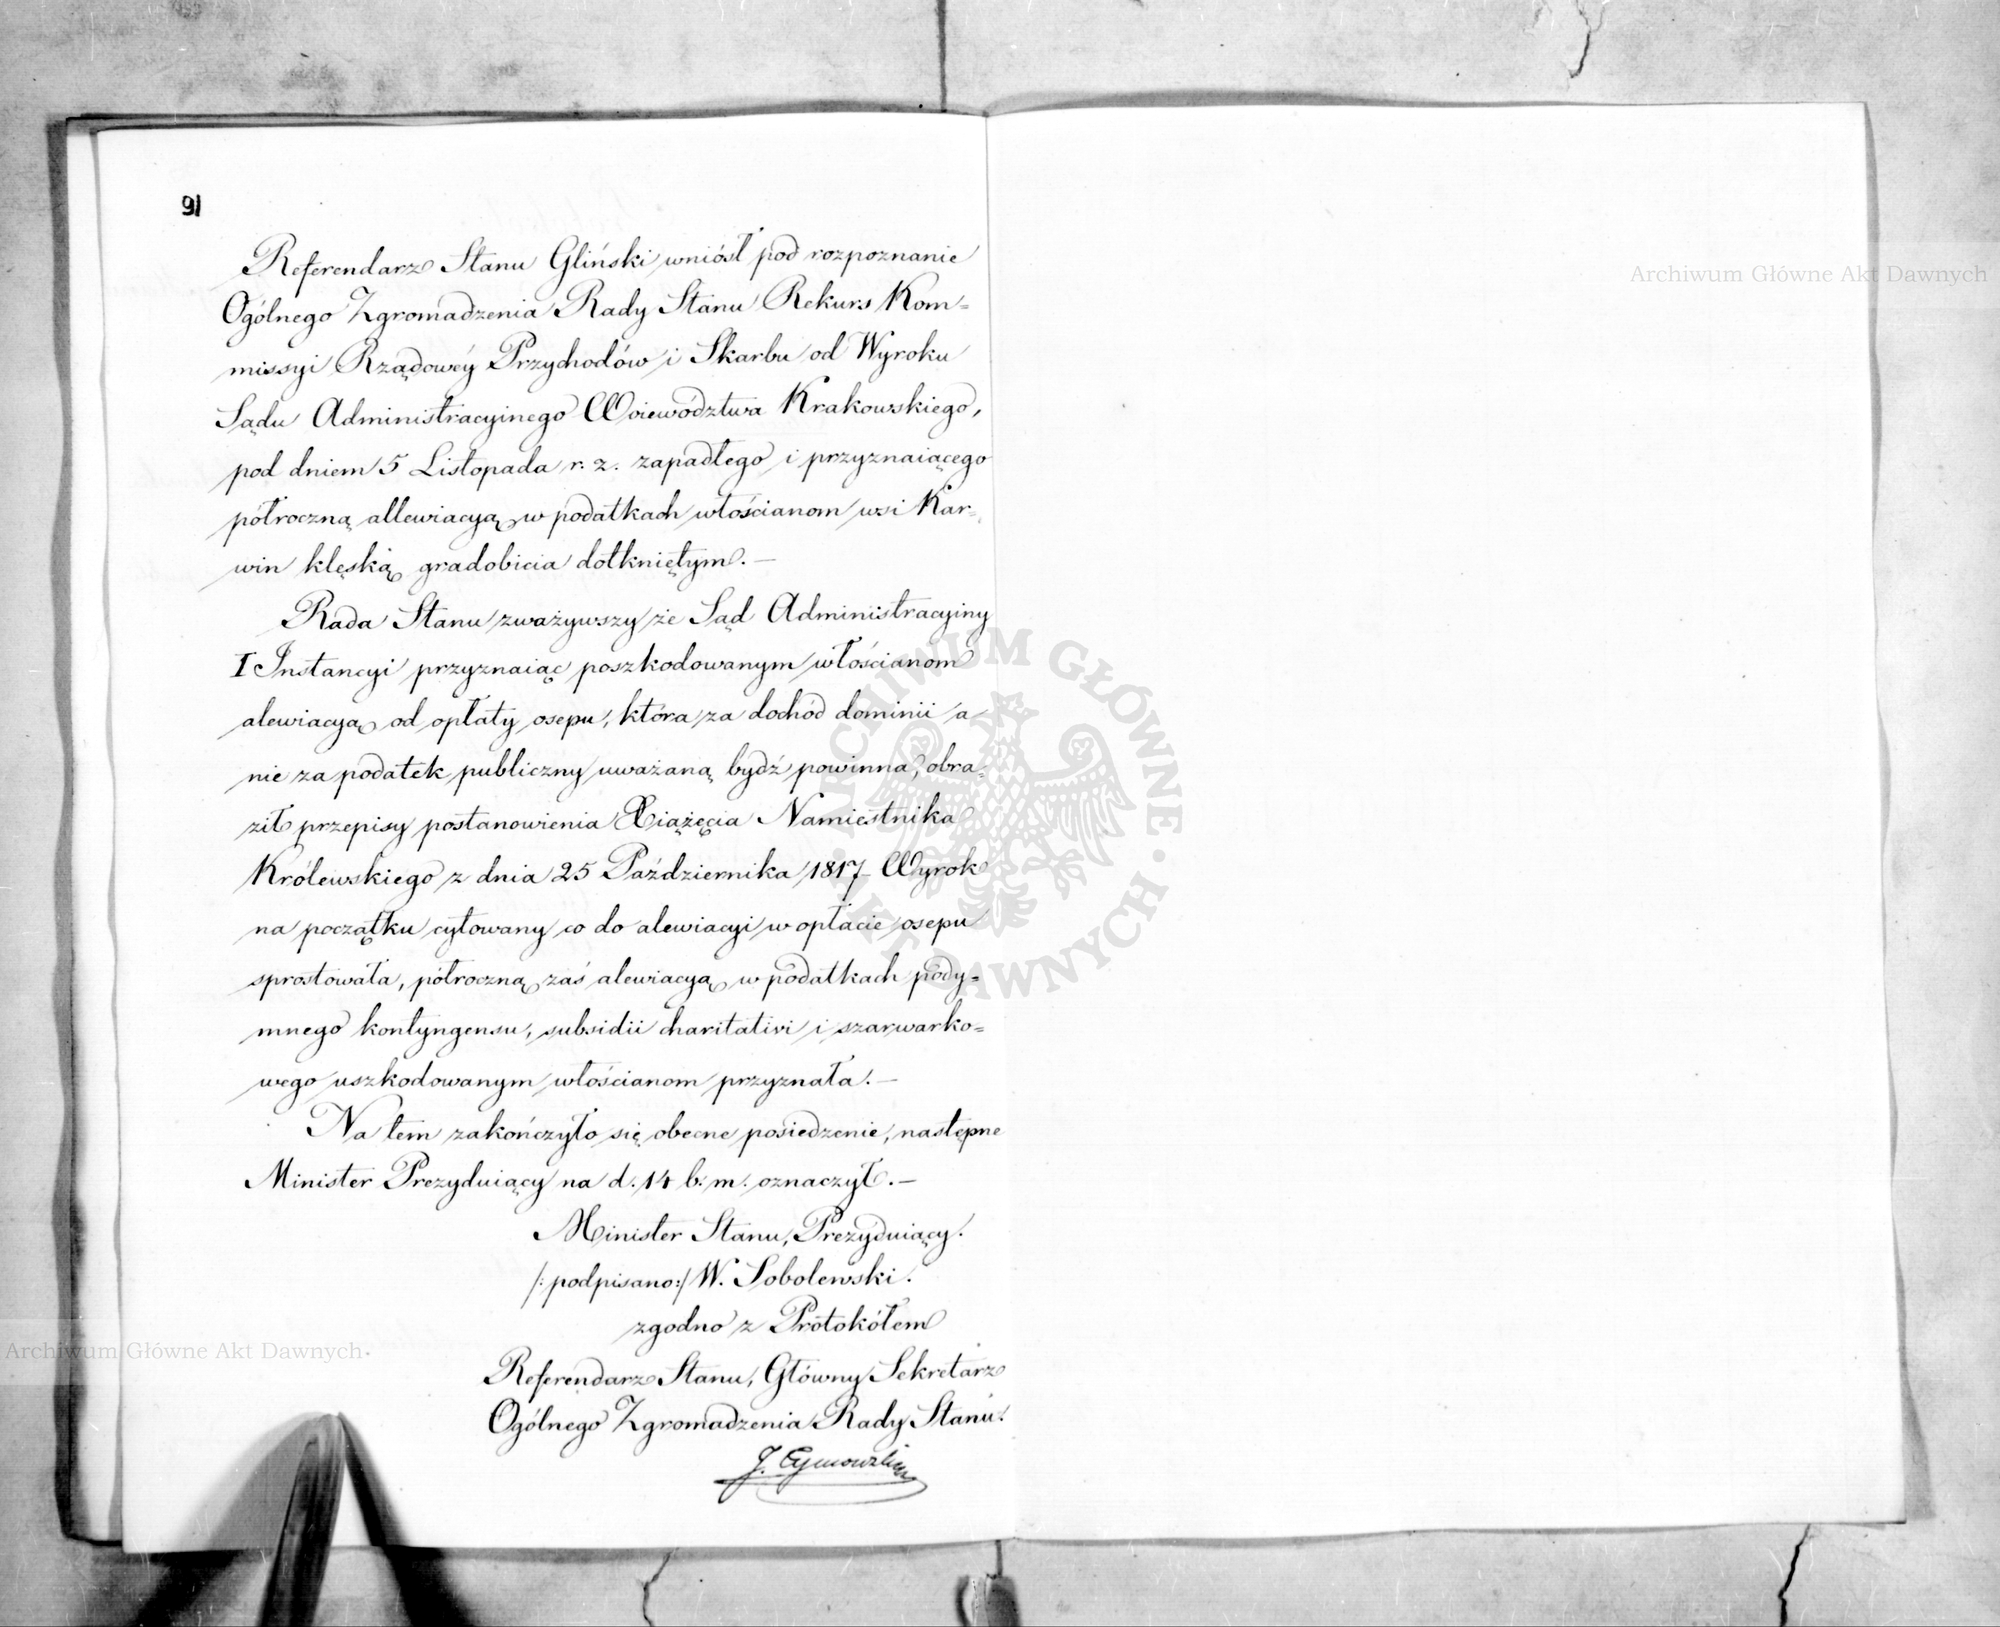 91
Referendarz Stanu Gliński wniósł pod rozpoznanie
Ogólnego Zgromadzenia Rady Stanu Rekurs Kom=
missyi Rządowéy Przychodów i Skarbu od Wyroku
Sądu Administracyinego Woiewództwa Krakowskiego,
pod dniem 5 Listopada r. z. zapadłego i przyznaiącego
półroczną allewiacyą w podatkach włościanom wsi Kar=
win klęską gradobicia dotkniętym. —
Rada Stanu zważywszy że Sąd Administracyiny
I Instancyi przyznaiąc poszkodowanym włościanom
alewiacyą od opłaty osepu, która za dochód dominii a
nie za podatek publiczny uważaną bydź powinna, obra=
ził przepisy postanowienia Xiążęcia Namiestnika
Królewskiego z dnia 25 Października 1817 Wyrok
na początku cytowany co do alewiacyi w opłacie osepu
sprostowała, półroczną zaś alewiacyą w podatkach pody=
mnego kontyngensu, subsidii charitativi i szarwarko=
wego uszkodowanym włościanom przyznała. —
Na tem zakończyło się obecne posiedzenie, następne
Minister Prezyduiący na d. 14 b. m. oznaczył. —
Minister Stanu, Prezyduiący.
/: podpisano :/ W. Sobolewski.
zgodno z Protokółem
Referendarz Stanu, Główny Sekretarz
Ogólnego Zgromadzenia Rady Stanu.
J.
Archiwum Główne Akt Dawnych
Archiwum Główne Akt Dawnych
ARCHIWUM GŁÓWNE AKT DAWNYCH